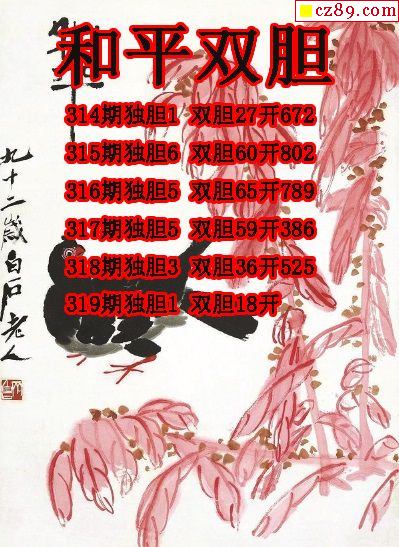 cz89.com
和平双胆
314期独胆1 双胆27开672
315期独胆6 双胆60开802
316期独胆5 双胆65开789
317期独胆5 双胆59开386
318期独胆3 双胆36开525
319期独胆1 双胆18开
九十二岁白石老人